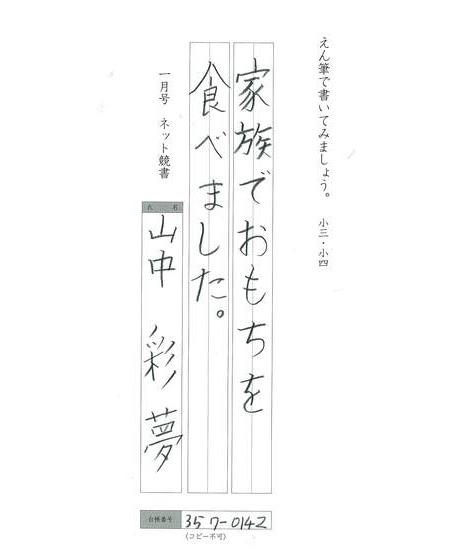 えん筆で書いてみましょう。 小三・小四
家族でおもちを
食べました。
一月号 ネット競書
氏名
山中 彩夢
台帳番号 357-0142
(コピー不可)